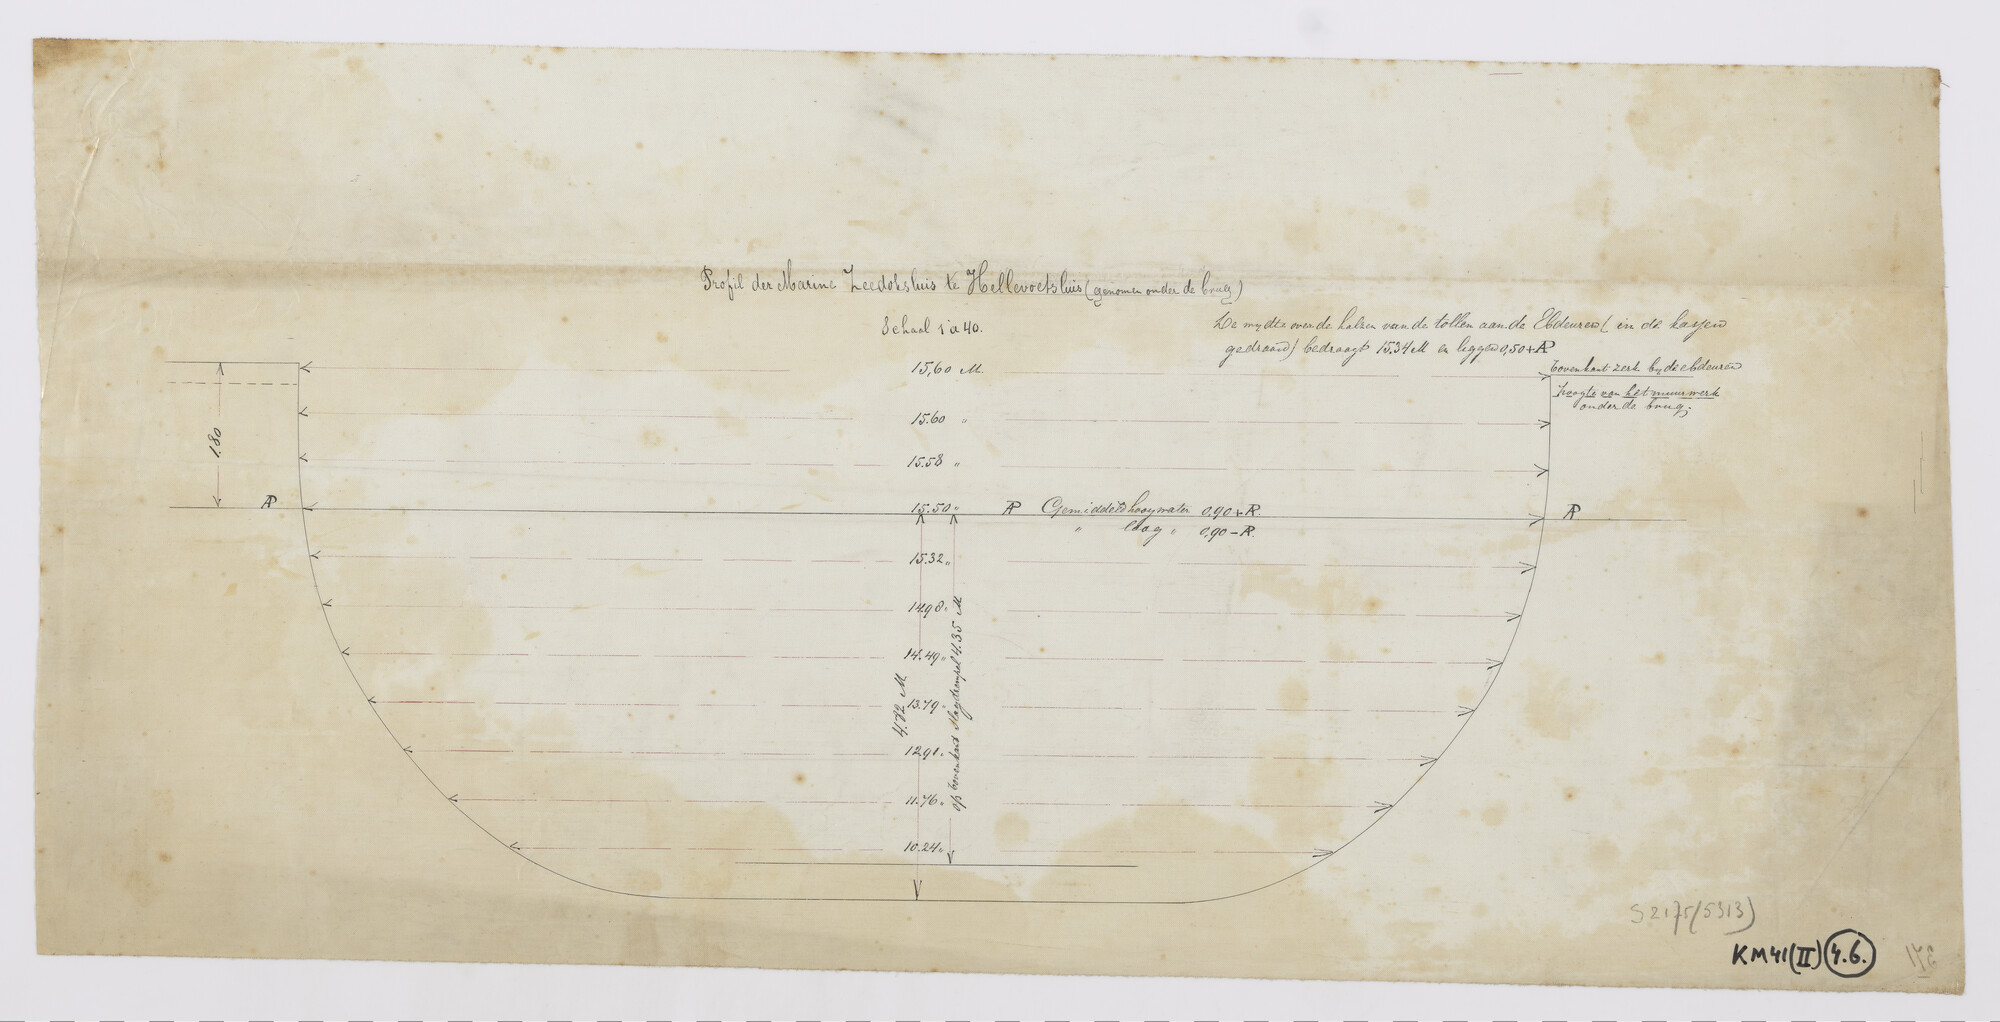 Profil der Marine Zeedoksluis te Hellevoetsluis (genomen onder de brug)
Schaal 1 à 40.
De wydte over de halzen van de tollen aan de Ebdeuren (in de kassen
gedraaid) bedraagt 15.34 M en liggen 0,50 + AP
bovenkant zerk by de ebdeuren
hoogte van het muurwerk
onder de brug.
15,60 M.
15.60 "
15.58 "
1.80
AP
15.50 "
AP
Gemiddeld hoogwater 0.90 + AP.
" laag " 0.90 – AP.
AP
15.32 "
14.98 "
14.49 "
13.79 "
12.91 "
11.76 "
10.24 "
4.72 M
op bovenkant slagdrempel 4.35 M
S2175(5313)
KM41(II) 4.6.